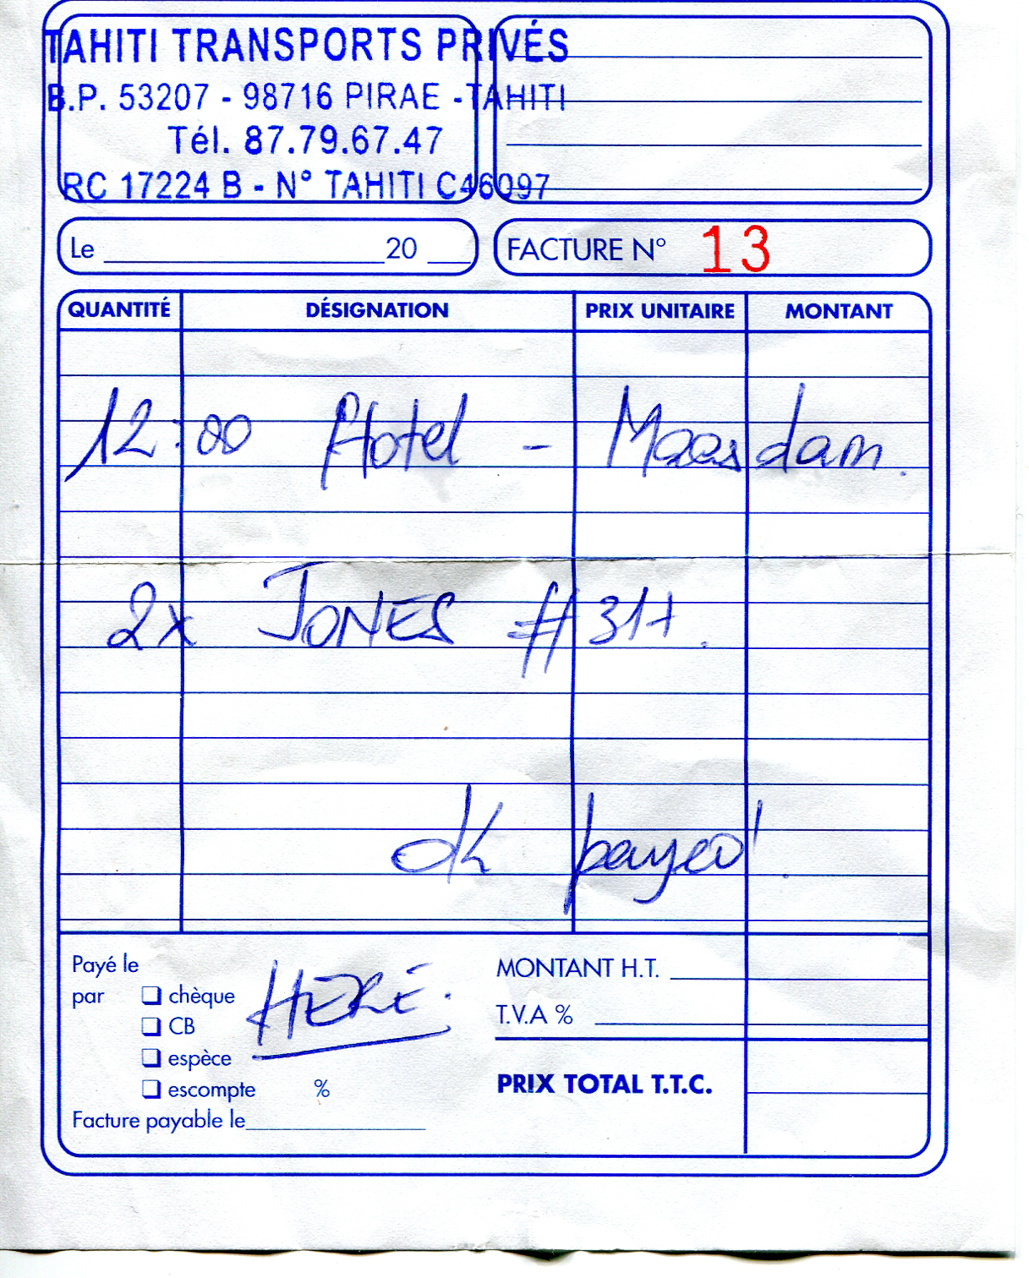 TAHITI TRANSPORTS PRIVÉS
B.P. 53207 - 98716 PIRAE - TAHITI
Tél. 87.79.67.47
RC 17224 B - N° TAHITI C46097
Le 20
FACTURE N° 13
QUANTITÉ DÉSIGNATION PRIX UNITAIRE MONTANT
12:00 Hotel - Maasdam.
2x JONES # 317.
OK payed
Payé le
par chèque
CB
espèce
escompte %
Facture payable le
HERE.
MONTANT H.T.
T.V.A %
PRIX TOTAL T.T.C.